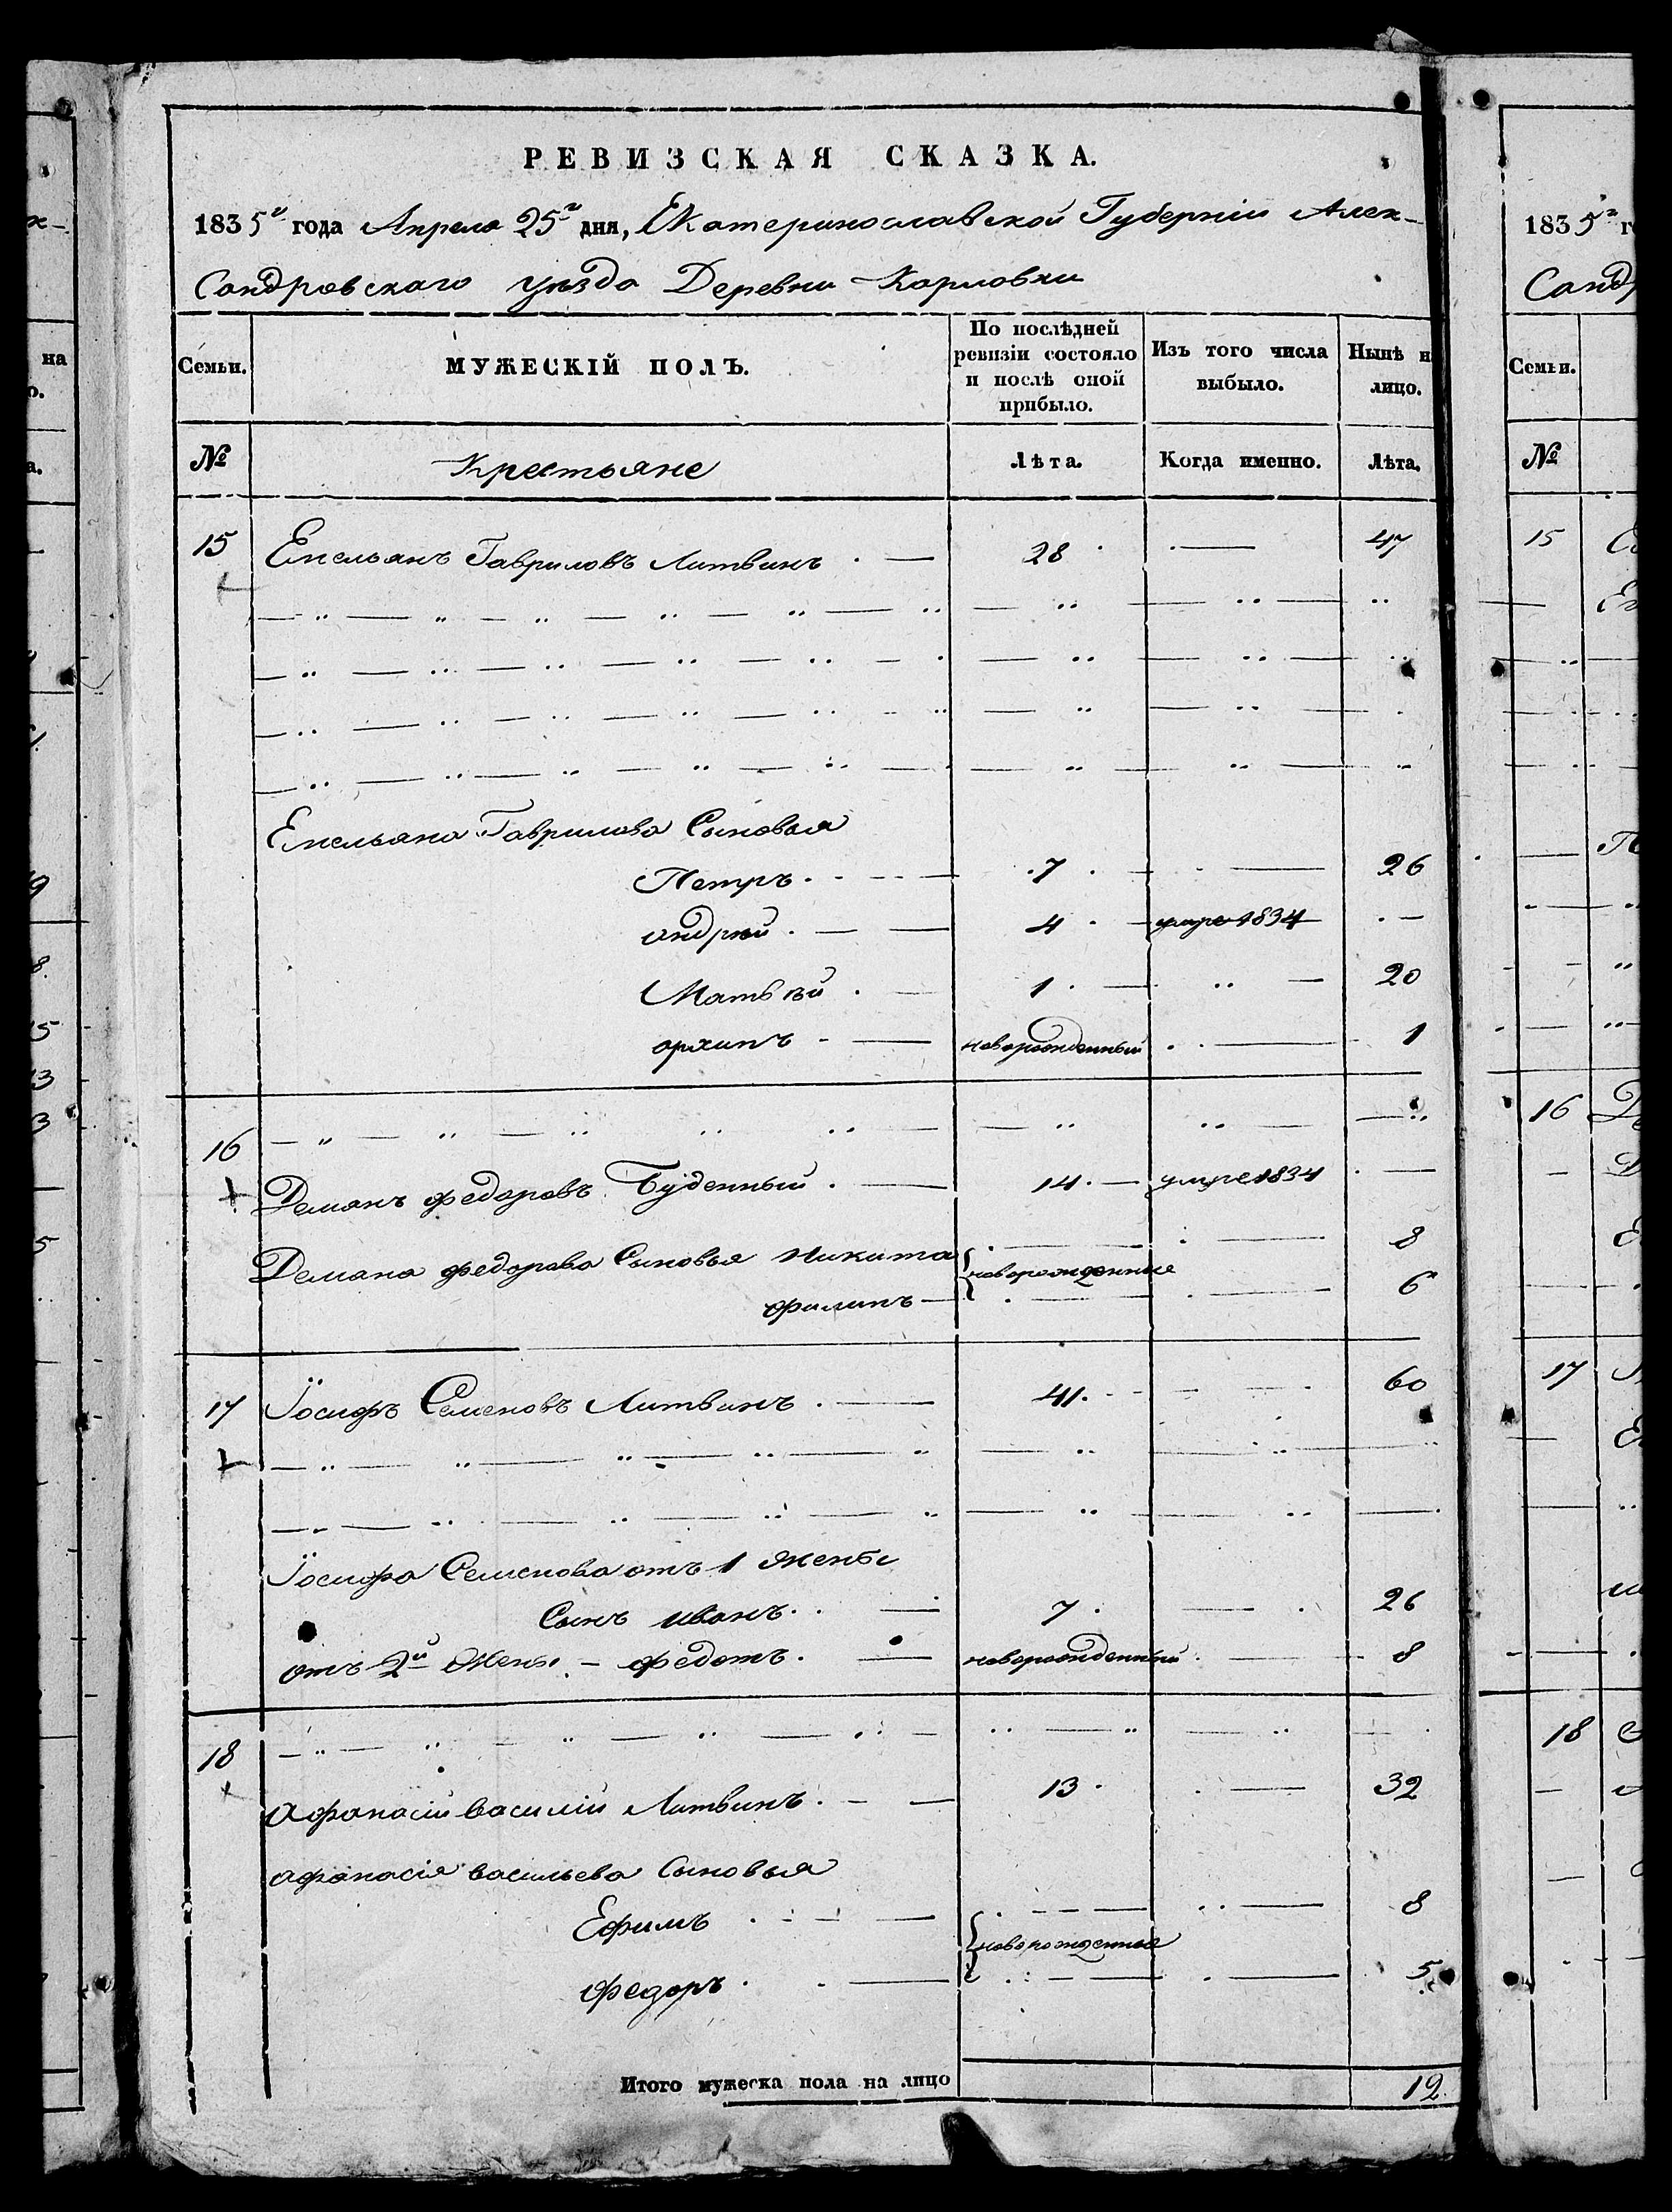 РЕВИЗСКАЯ СКАЗКА.
1835го года Апреля 25го дня, Екатеринославской Губерніи Алек-
сандровскаго уѣзда Деревни Карловки
Семьи.
МУЖЕСКІЙ ПОЛЪ.
По послѣдней ревизіи состояло и послѣ оной прибыло.
Изъ того числа выбыло.
Нынѣ н лицо.
№
Крестьяне
Лѣта.
Когда именно.
Лѣта.
15 Емельянъ Гавриловъ Литвинъ 28 47
Емельяна Гаврилова Сыновья
Петръ 7 26
андрей 4 умре 1834
Матвѣй 1 20
архипъ новорожденный 1
16
Демянъ федоровъ Буденный 14 умре 1834
Демяна федорова Сыновья Никита 8
новорожденные
филипъ 6
17 Іосифъ Семеновъ Литвинъ 41 60
Іосифа Семенова отъ 1 жены
Сынъ иванъ 7 26
отъ 2й жены федотъ новорожденный 8
18
афанасій василіи Литвинъ 13 32
афанасія васильева Сыновья
Ефимъ 8
новорожденные
федоръ 5
Итого мужеска пола на лицо 12
на
о.
а.
1835го г
Санд
Семьи.
№
15
16
17
18